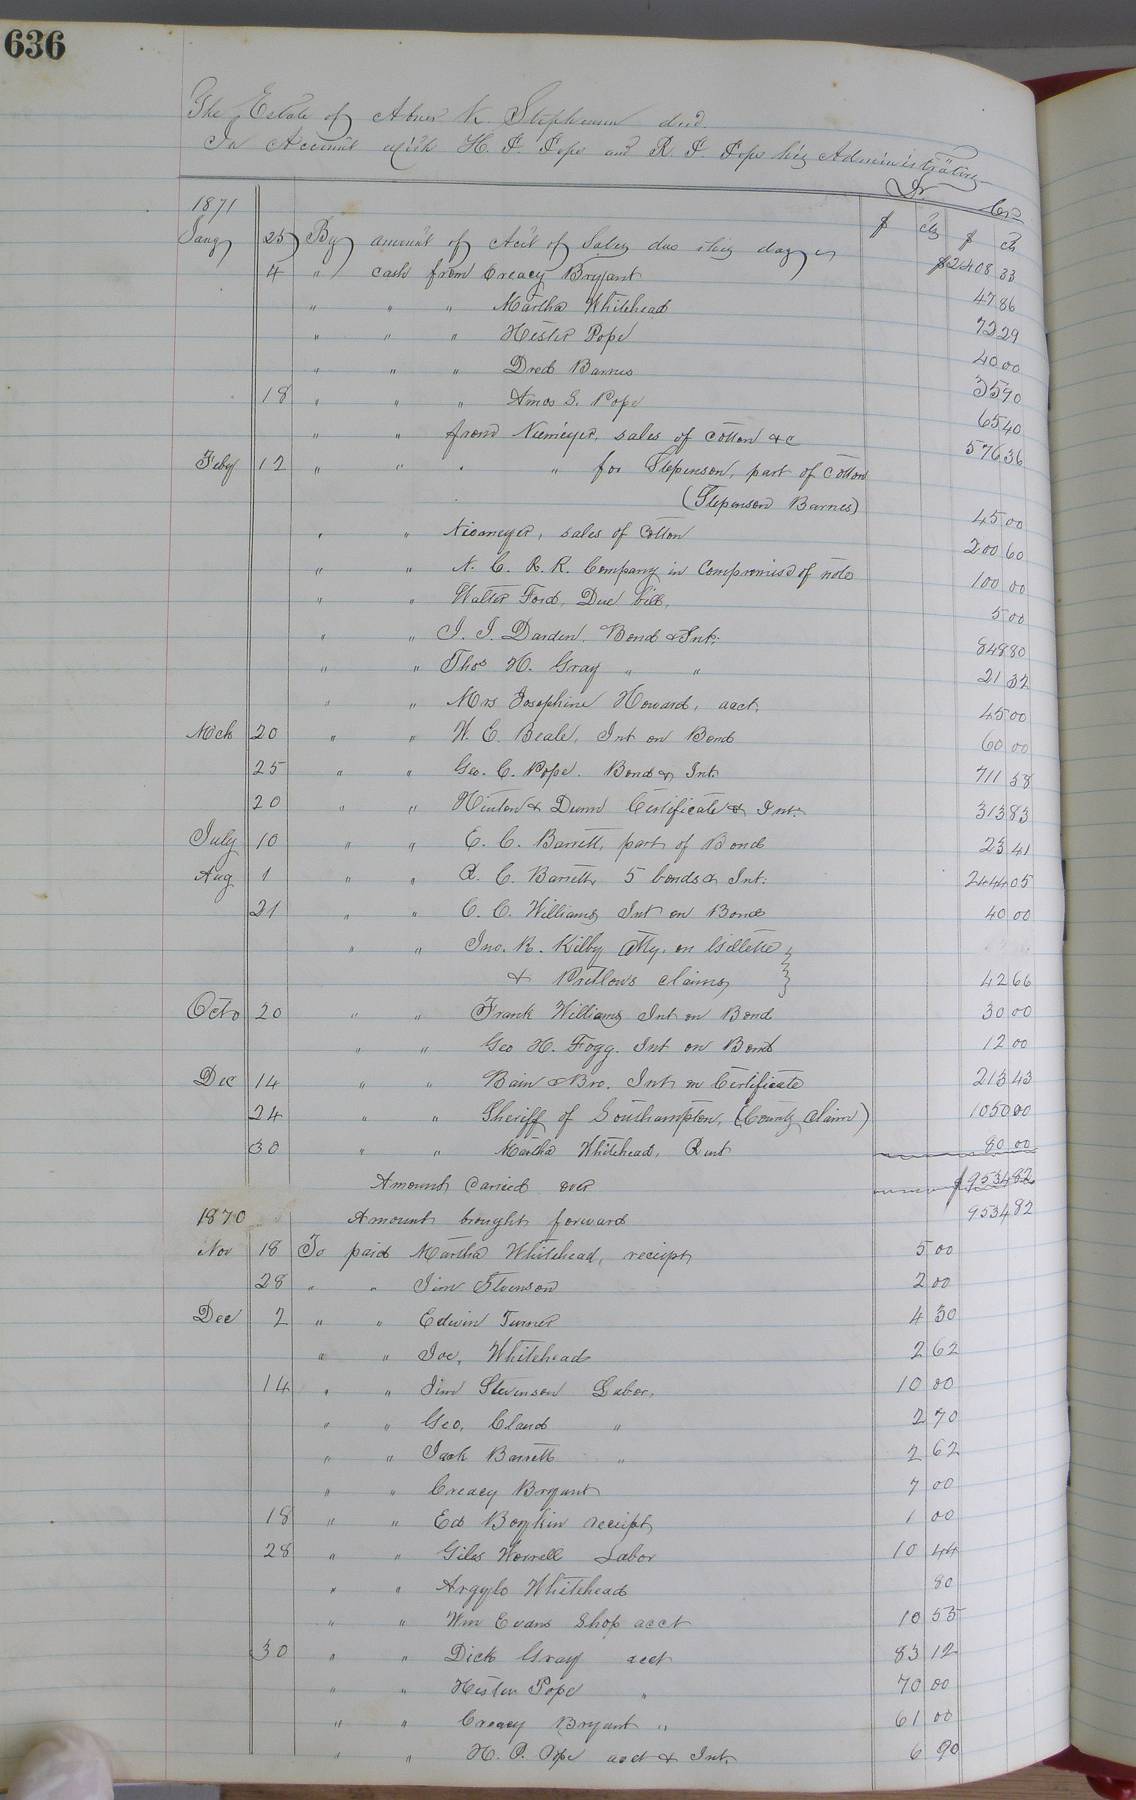 636
The Estate of Abner Stephenson decd.
In Account with H. P. Pope and R. P. Pope his Administrators
Dr. Crs
1871 $ cts $ cts
Jany 25 By amount of Act of Sales due this day is $2408 33
4 " cash from Creacy Bryant 47 86
" " " Martha Whitehead 72 29
" " " Hester Pope 40 00
" " " Dred Barnes 35 90
18 " " " Amos S. Pope 65 40
" " from Niemeyer, sales of cotton &c 576 36
Feby 12 " " " " for Stepenson, part of cotton
(Stepenson Barnes) 45 00
" " Niemeyer, sales of Cotton 200 60
" " N. C. R. R. Company in Compromise of note 100 00
" " Walter Ford, Due bill, 5 00
" " J. J. Darden, Bond & Int: 848 80
" " Thos H. Gray " " 21 32
" " Mrs Josephine Howard, acct. 45 00
Mch 20 " " W. E. Beale, Int on Bond 60 00
25 " " Geo. C. Pope. Bond & Int. 711 58
20 " " Hinton & Dunn Certificate & Int: 313 83
July 10 " " E. C. Barrett, part of Bond 23 41
Aug 1 " " R. C. Barrett, 5 bonds & Int: 2444 05
21 " " C. C. Williams Int on Bond 40 00
" " Jno. R. Kilby Atty. on Gillette
& Pretlows claims 42 66
Octo 20 " " Frank Williams Int on Bond 30 00
" " Geo H. Fogg. Int on Bond 12 00
Dec 14 " " Bain & Bro. Int on Certificate 213 43
24 " " Sheriff of Southampton, (County Claim) 1050 00
30 " " Martha Whitehead, Rent 80 00
Amount Carried over $9534 82
1870 Amount brought forward 9534 82
Nov 18 To paid Martha Whitehead, receipt 5 00
28 " " Jim Stvenson 2 00
Dec 2 " " Edwin Turner 4 30
" " Joe, Whitehead 2 62
14 " " Jim Stevenson Labor, 10 00
" " Geo, Claud " 2 70
" " Jack Barrett " 2 62
" " Creacy Bryant 7 00
18 " " Ed Boykin receipt 1 00
28 " " Giles Worrell Labor 10 44
" " Argyle Whitehead 80
" " Wm Evans Shop acct 10 55
30 " " Dick Gray acct 83 12
" " Hester Pope " 70 00
" " Creacy Bryant " 61 00
" " H. P. Pope acct & Int. 6 90